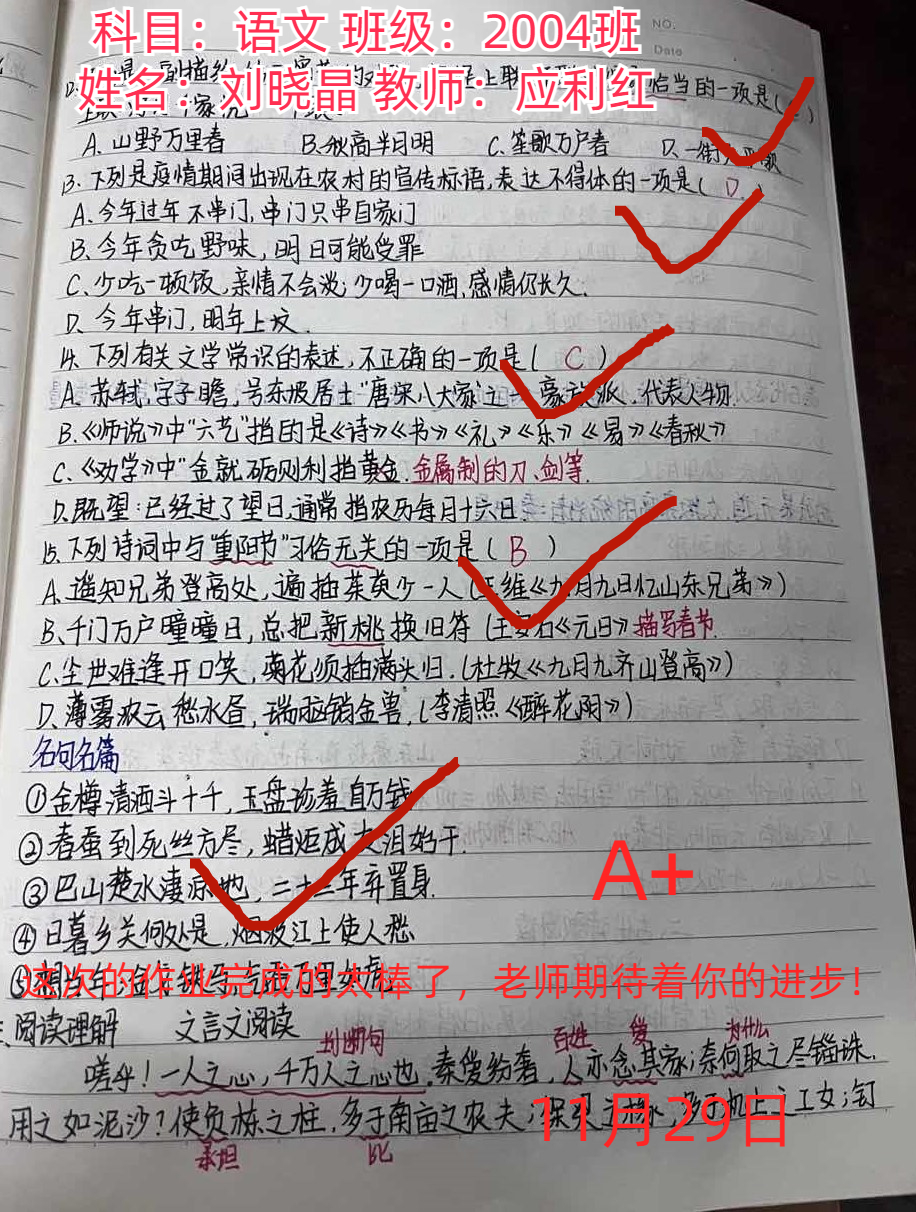 NO.
Date
科目：语文 班级：2004班
姓名：刘晓晶 教师：应利红
恰当的一项是(
A.山野万里春 B.秋高半月明 C.笙歌万户春 D.一街
13.下列是疫情期间出现在农村的宣传标语,表达不得体的一项是( D )
A.今年过年不串门,串门只串自家门
B.今年贪吃野味,明日可能受罪
C.少吃一顿饭,亲情不会淡;少喝一口酒,感情仍长久.
D.今年串门,明年上坟.
14.下列有关文学常识的表述,不正确的一项是( C )
A.苏轼,字子瞻,号东坡居士"唐宋八大家之一,豪放派,代表人物.
B.《师说》中"六艺"指的是《诗》《书》《礼》《乐》《易》《春秋》
C.《劝学》中"金就砺则利指黄金.金属制的刀、剑等.
D.既望:已经过了望日,通常指农历每月十六日
15.下列诗词中与"重阳节"习俗无关的一项是( B )
A.遥知兄弟登高处,遍插茱萸少一人(王维《九月九日忆山东兄弟》)
B.千门万户曈曈日,总把新桃换旧符(王安石《元日》描写春节.
C.尘世难逢开口笑,菊花须插满头归.(杜牧《九月九齐山登高》)
D.薄雾浓云愁永昼,瑞脑销金兽,(李清照《醉花阴》)
名句名篇
①金樽清酒斗十千,玉盘珍羞直万钱
②春蚕到死丝方尽,蜡炬成灰泪始干.
③巴山楚水凄凉地,二十三年弃置身.
A+
④日暮乡关何处是,烟波江上使人愁
⑤想当年,金戈铁马,气吞万里如虎
这次的作业完成的太棒了，老师期待着你的进步！
阅读理解 文言文阅读
判断句 百姓 爱 为什么
嗟乎!一人之心,千万人之心也.秦爱纷奢,人亦念其家;奈何取之尽锱铢.
用之如泥沙?使负栋之柱,多于南亩之农夫;架梁之椽,多于机上之工女;钉
11月29日
承担 比